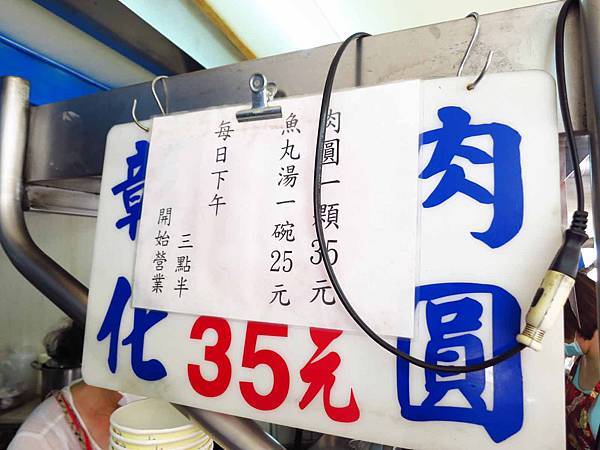 肉圓
彰化
35元
肉圓一顆35元
魚丸湯一碗25元
每日下午
三點半
開始營業